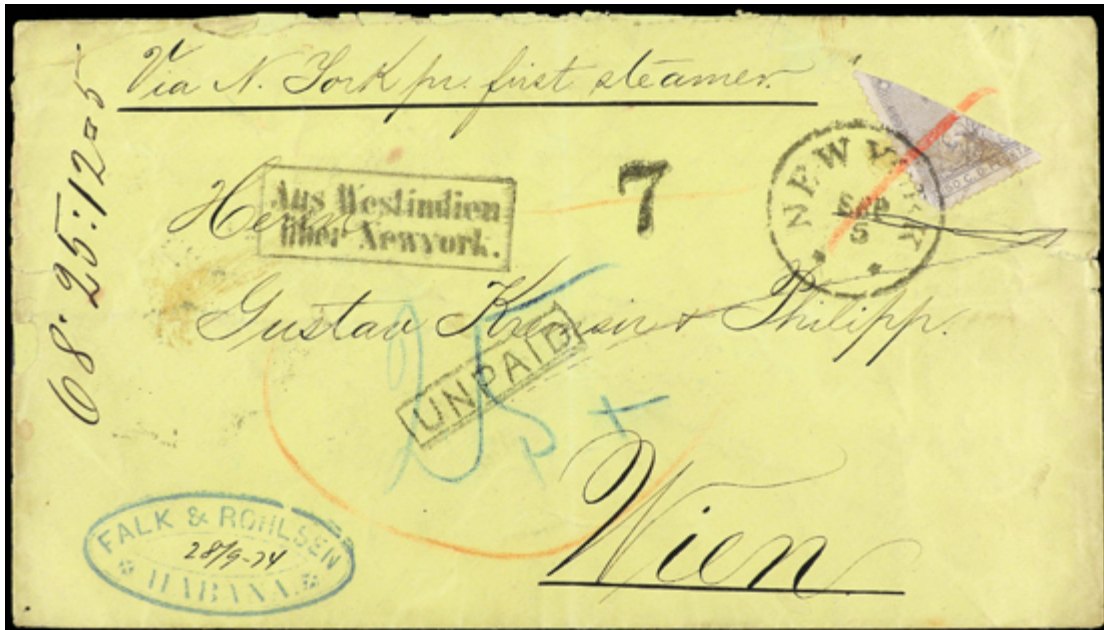 Via N. York pr. first steamer.
68. 25:12=5
Aus Westindien
über Newyork.
7
NEW YORK
SEP
5
Herrn
Gustav & Philipp.
UNPAID
25
Wien
FALK & ROHLSEN
28/9-74
HABANA.